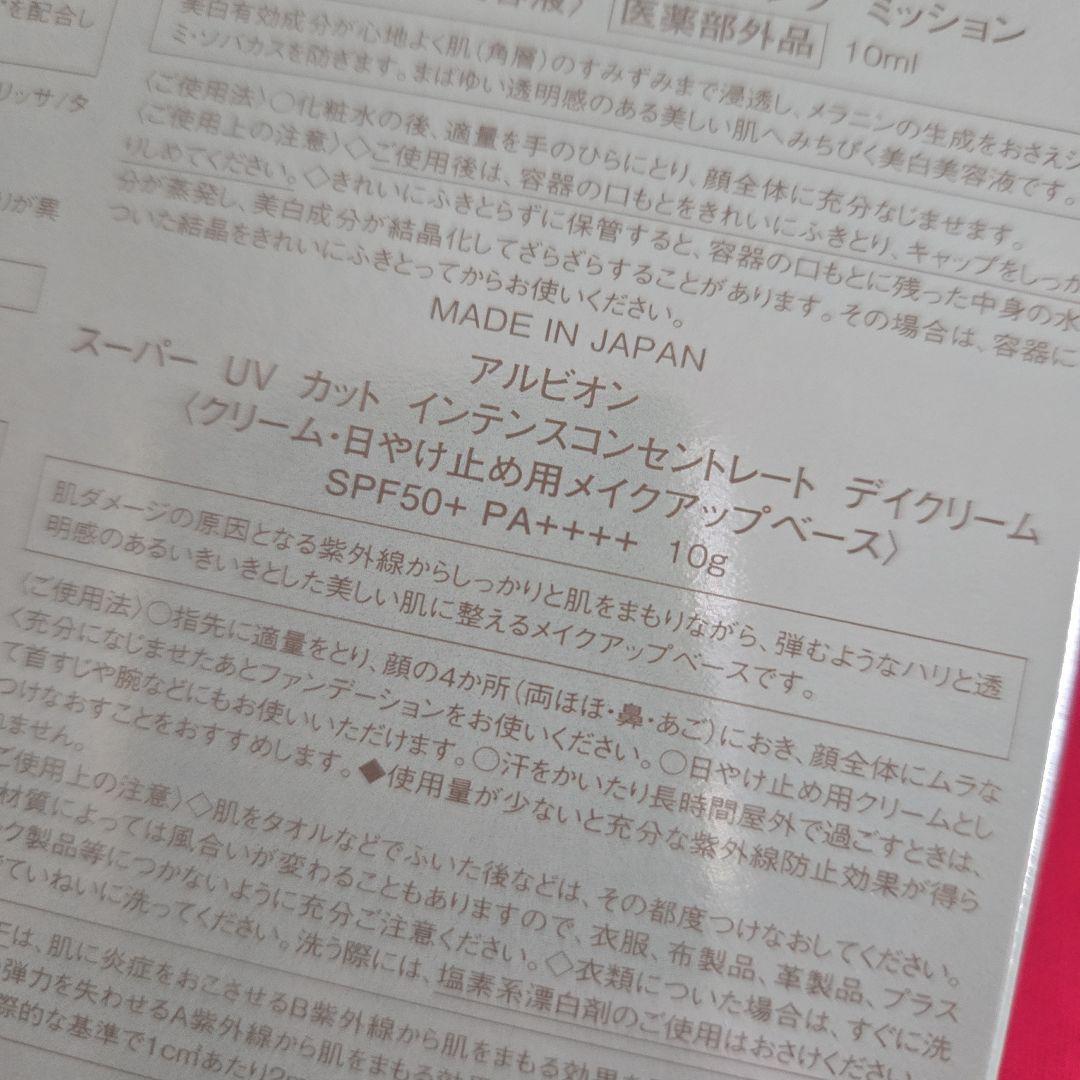 を配合し
リッサ/タ
りが異
容液〉 医薬部外品 ミッション
10ml
美白有効成分が心地よく肌(角層)のすみずみまで浸透し、メラニンの生成をおさえシ
ミ・ソバカスを防ぎます。まばゆい透明感のある美しい肌へみちびく美白美容液です。
〈ご使用法〉○化粧水の後、適量を手のひらにとり、顔全体に充分なじませます。
〈ご使用上の注意〉◇ご使用後は、容器の口もとをきれいにふきとり、キャップをしっか
りしめてください。◇きれいにふきとらずに保管すると、容器の口もとに残った中身の水
分が蒸発し、美白成分が結晶化してざらざらすることがあります。その場合は、容器に
ついた結晶をきれいにふきとってからお使いください。
MADE IN JAPAN
アルビオン
スーパー UV カット インテンスコンセントレート デイクリーム
〈クリーム・日やけ止め用メイクアップベース〉
SPF50+ PA++++ 10g
肌ダメージの原因となる紫外線からしっかりと肌をまもりながら、弾むようなハリと透
明感のあるいきいきとした美しい肌に整えるメイクアップベースです。
〈ご使用法〉○指先に適量をとり、顔の4か所(両ほほ・鼻・あご)におき、顔全体にムラな
く充分になじませたあとファンデーションをお使いください。○日やけ止め用クリームとし
て首すじや腕などにもお使いいただけます。○汗をかいたり長時間屋外で過ごすときは、
つけなおすことをおすすめします。◆使用量が少ないと充分な紫外線防止効果が得ら
れません。
ご使用上の注意〉◇肌をタオルなどでふいた後などは、その都度つけなおしてください。
材質によっては風合いが変わることもありますので、衣服、布製品、革製品、プラス
ク製品等につかないように充分ご注意ください。◇衣類についた場合は、すぐに洗
ていねいに洗ってください。洗う際には、塩素系漂白剤のご使用はおさけください。
は、肌に炎症をおこさせるB紫外線から肌をまもる効果を
弾力を失わせるA紫外線から肌をまもる効果
際的な基準で1c㎡あたり2